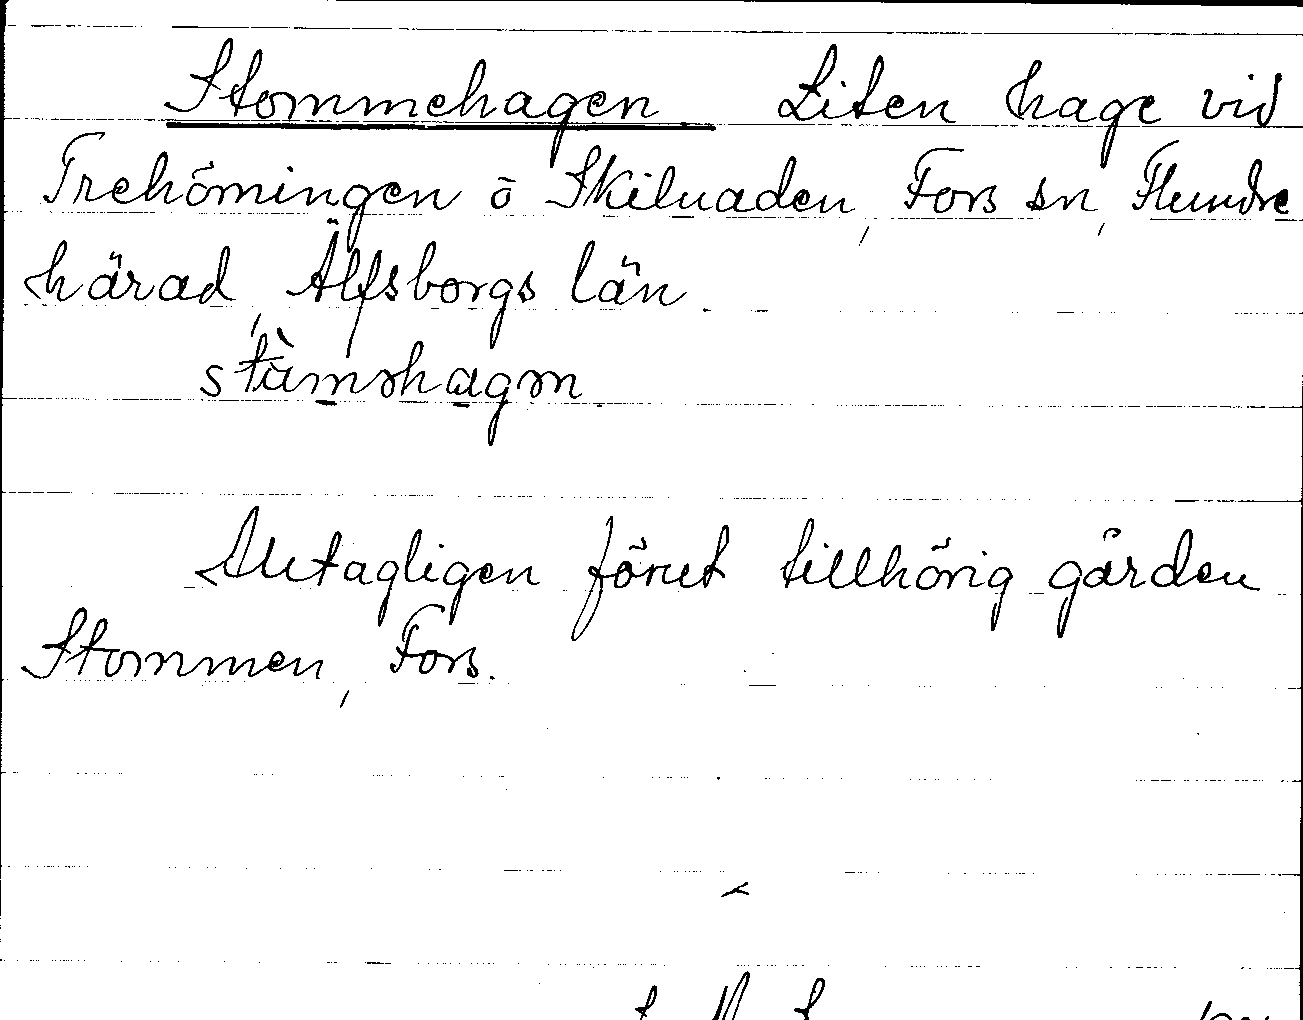 Stommehagen Liten hage vid
Trehörningen å Skiluaden, Fors sn, Flundre
härad, Älfsborgs län.
Antagligen förut tillhörig gården
Stommen, Fors.